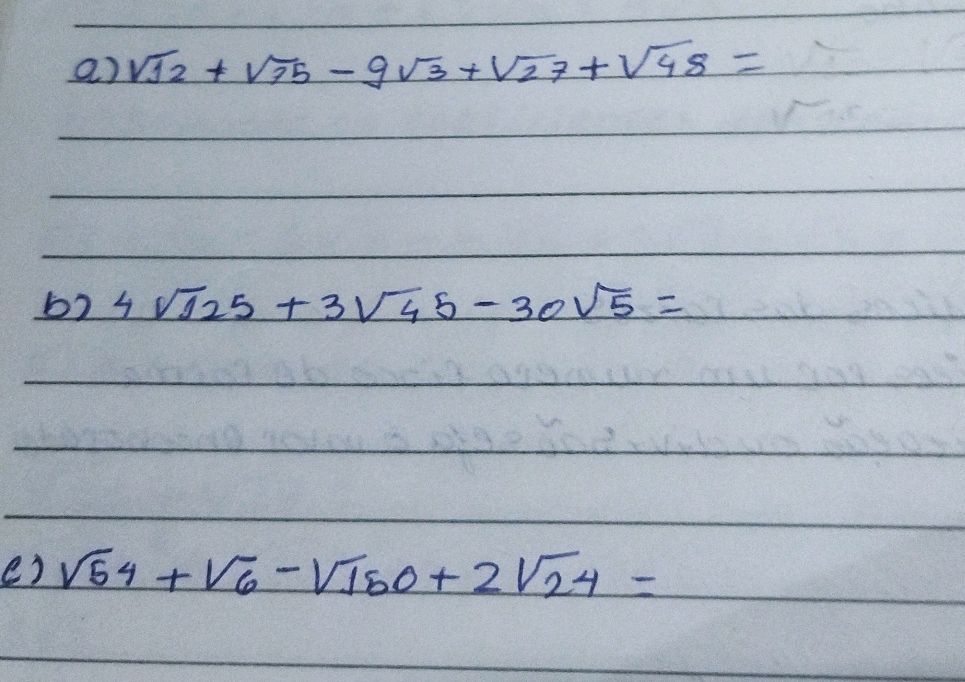 a) √12 + √75 - 9√3 + √27 + √48 =
b) 4√125 + 3√45 - 30√5 =
c) √54 + √6 - √150 + 2√24 =